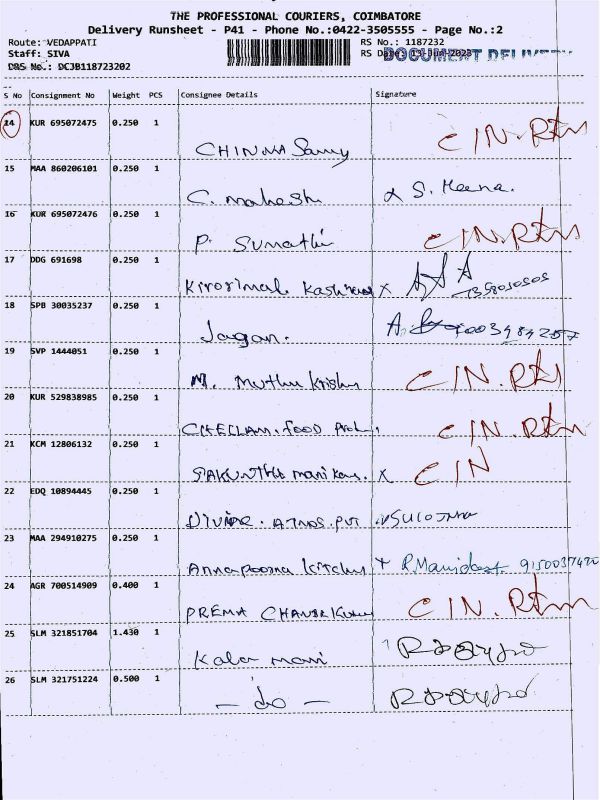 THE PROFESSIONAL COURIERS, COIMBATORE
Delivery Runsheet - P41 - Phone No.:0422-3505555 - Page No.:2
Route: VEDAPPATI RS No.: 1187232
Staff: SIVA RS Date: 13-Jun-2023 DOCUMENT DELIVERY
D&S No.: DCJB118723202
S No Consignment No Weight PCS Consignee Details Signature
14 KUR 695072475 0.250 1 CHINNA Samy C/N.RTN
15 MAA 860206101 0.250 1 C. mahesh x S. Meena.
16 KUR 695072476 0.250 1 P. Sumathi C/N.RTN
17 DDG 691698 0.250 1 Kirorimal x
18 SPB 30035237 0.250 1 Jagan. A.
19 SVP 1444051 0.250 1 M. Muthu Krishn C/N.RTN
20 KUR 529838985 0.250 1 CHELLAM. FOOD Prod. C/N.RTN
21 KCM 12806132 0.250 1 x C/N
22 EDQ 10894445 0.250 1 Divine. ATMOS. PVT
23 MAA 294910275 0.250 1 Annapoorna kitchen
24 AGR 700514909 0.400 1 PREMA C/N.RTN
25 SLM 321851704 1.430 1 Kala mani
26 SLM 321751224 0.500 1 - do -